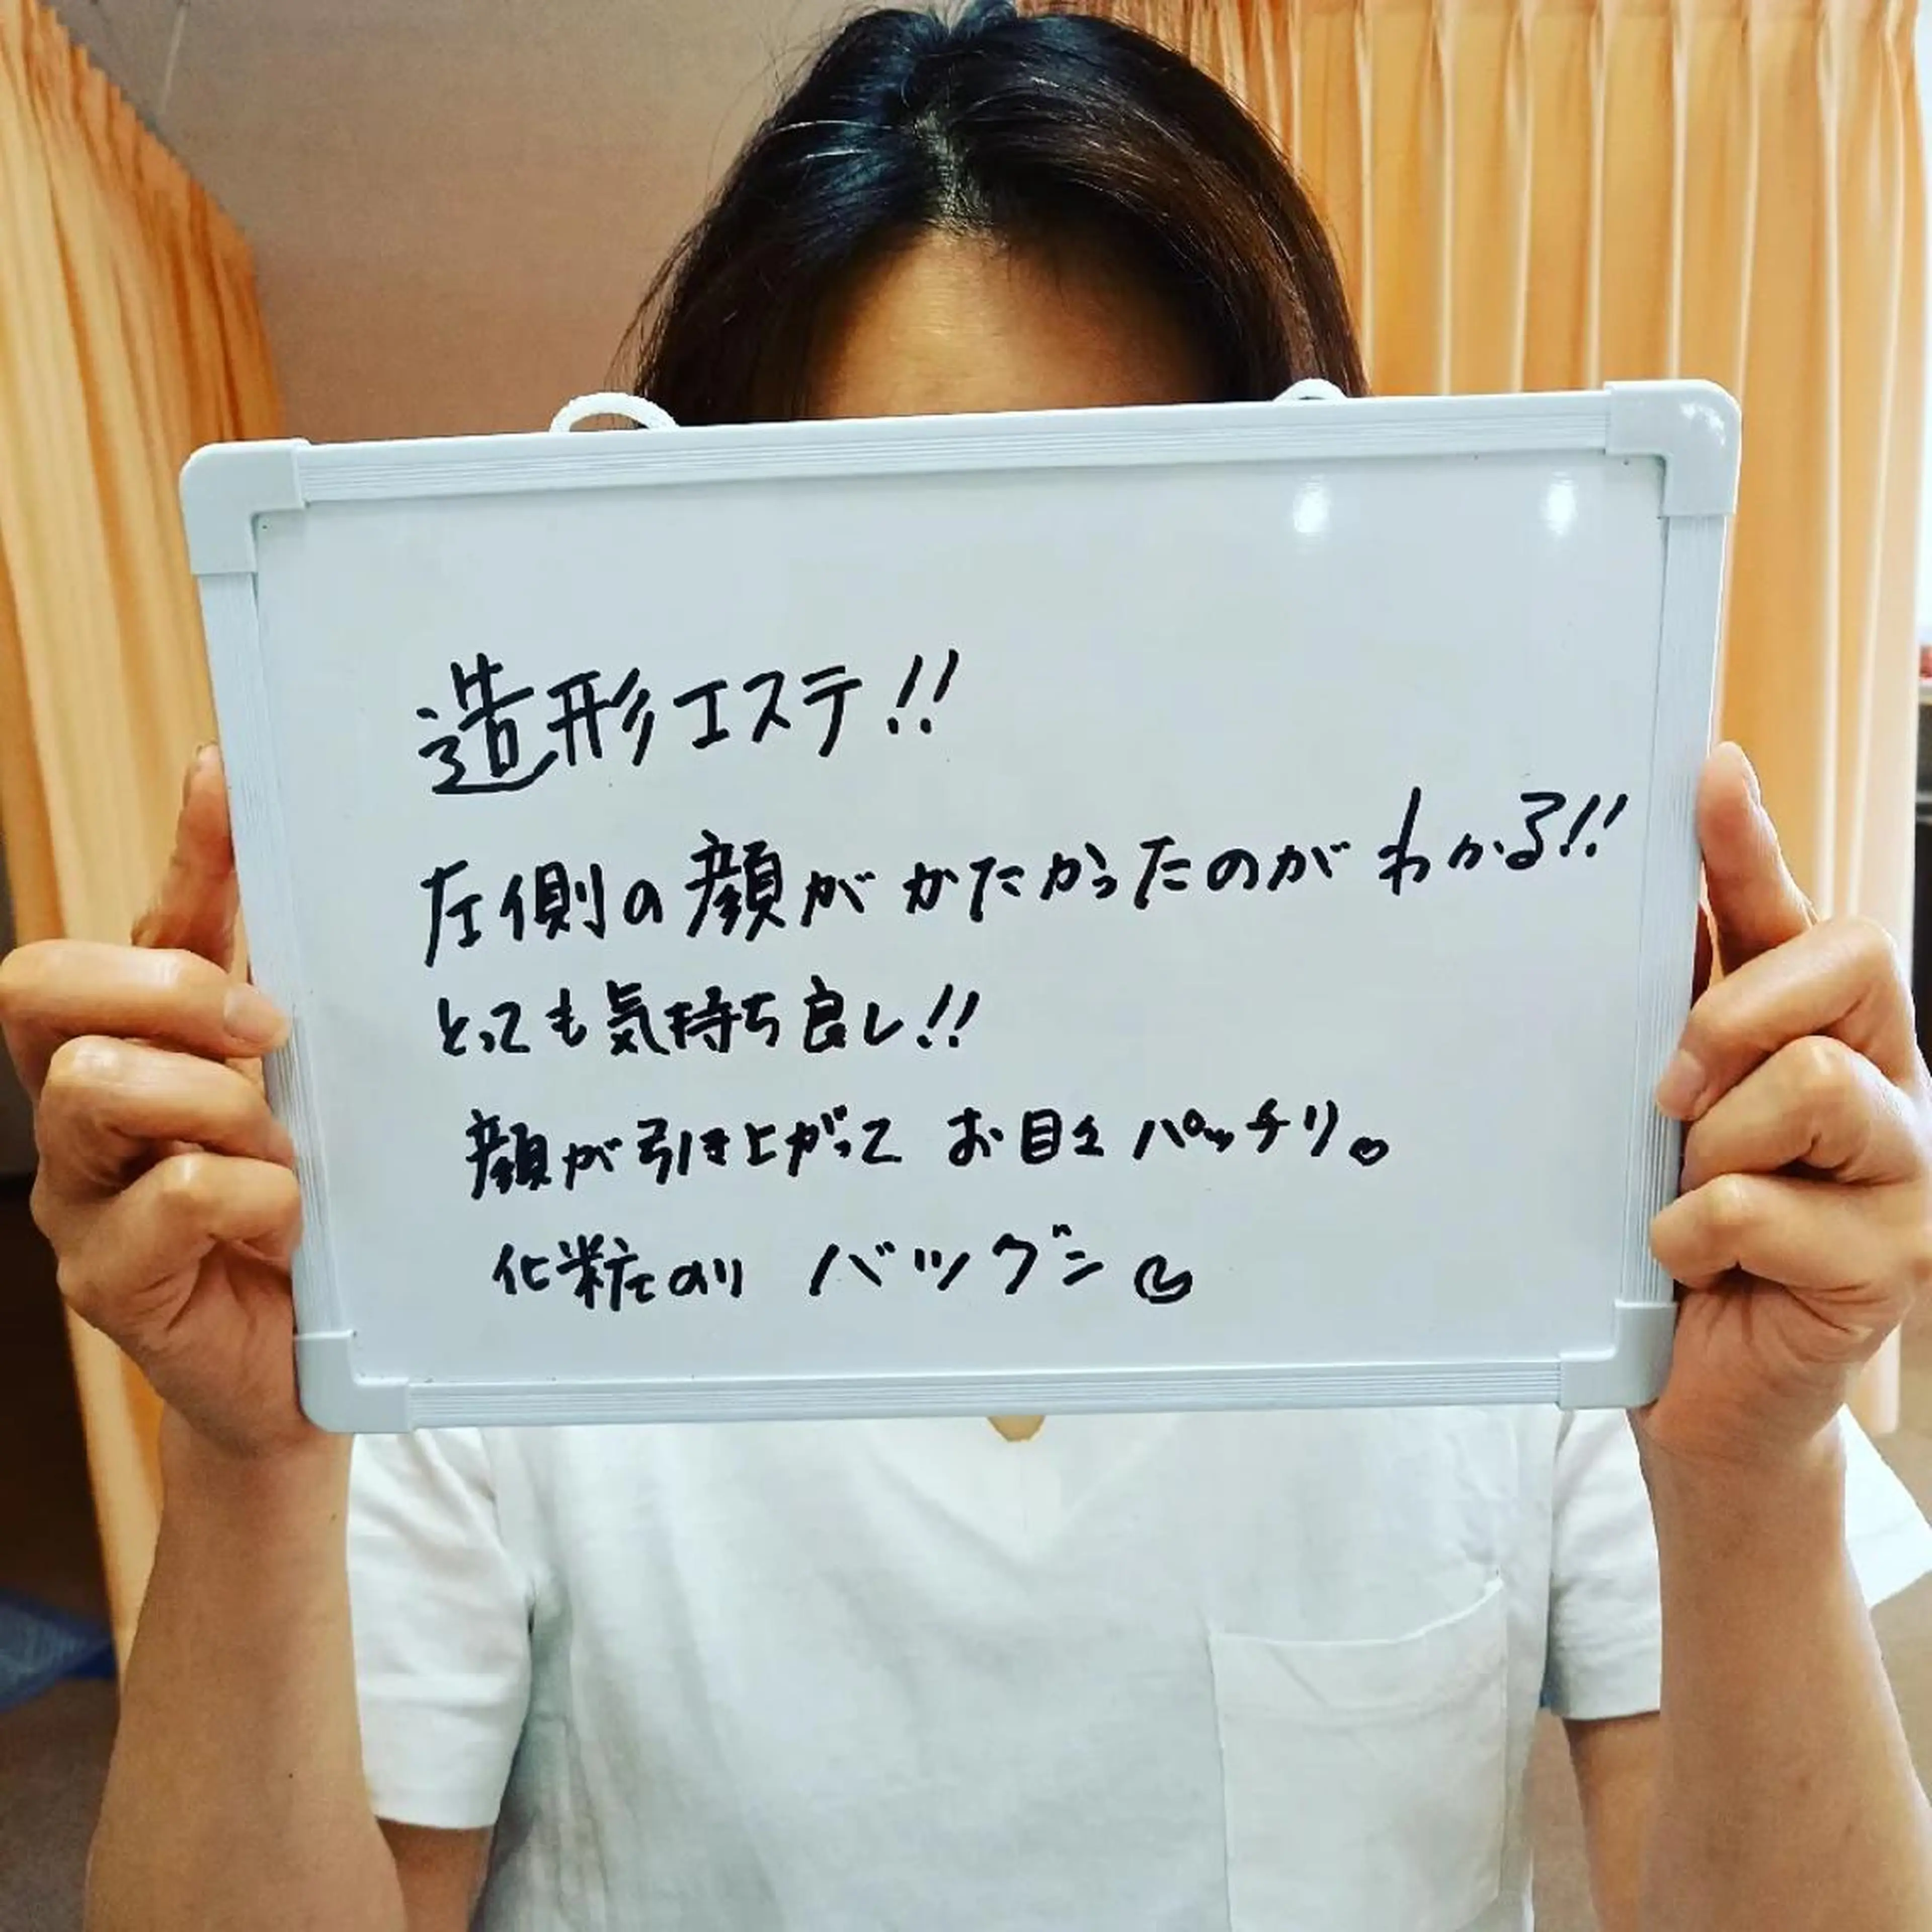 造形エステ!!
左側の顔がかたかったのがわかる!!
とっても気持ち良し!!
顔が引き上がって お目々パッチリ♡
化粧のり バツグン